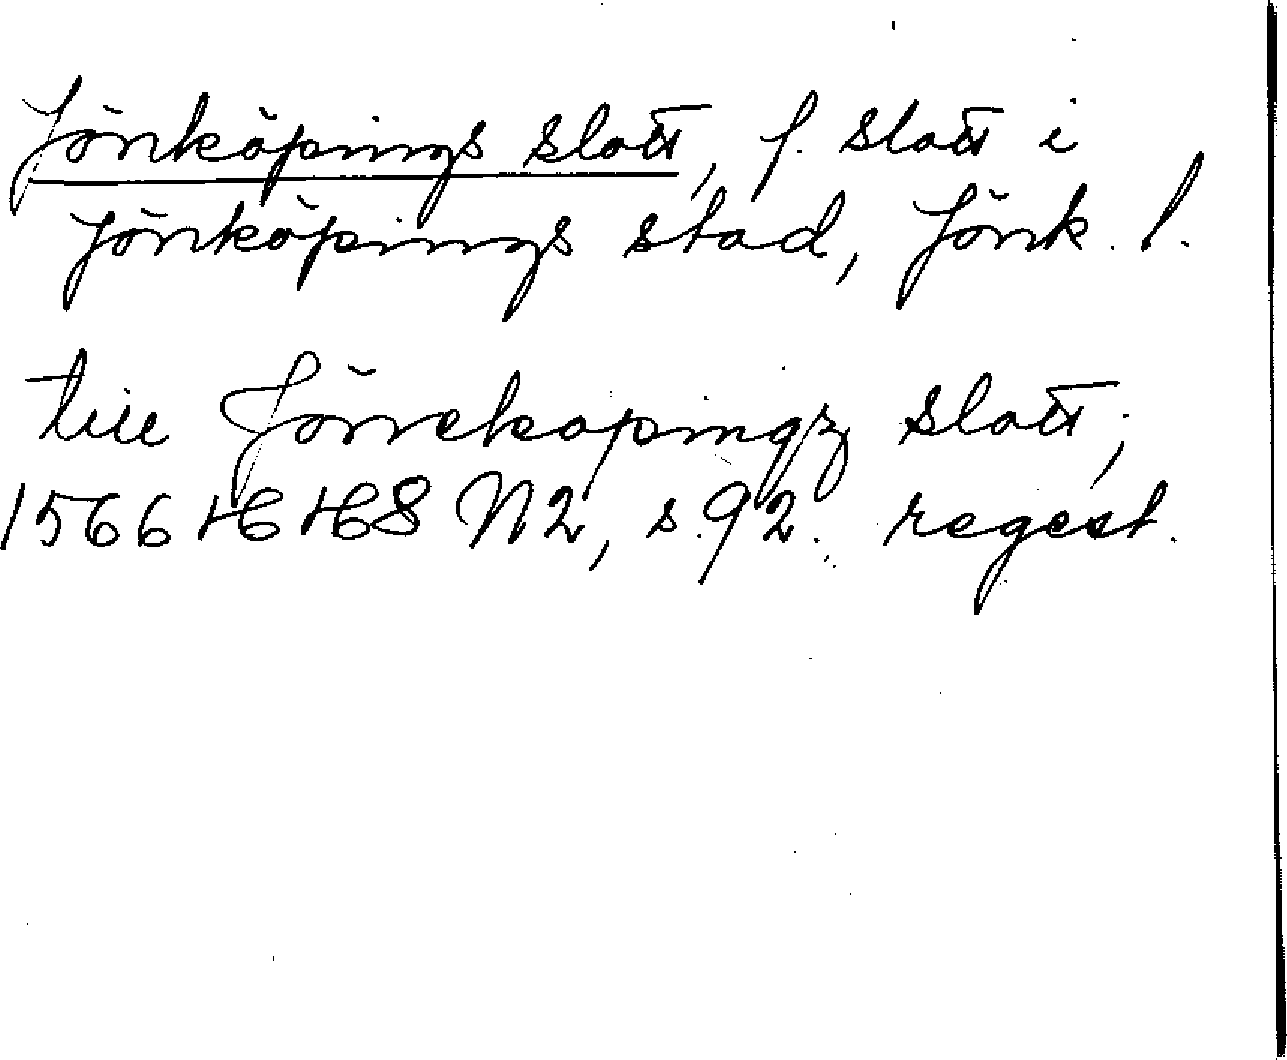 Jönköpings slott, f. slott i
Jönköpings stad, Jönk. l.
till Jönekopingz slott,
1566 HH8 N2, s. 92. regest.